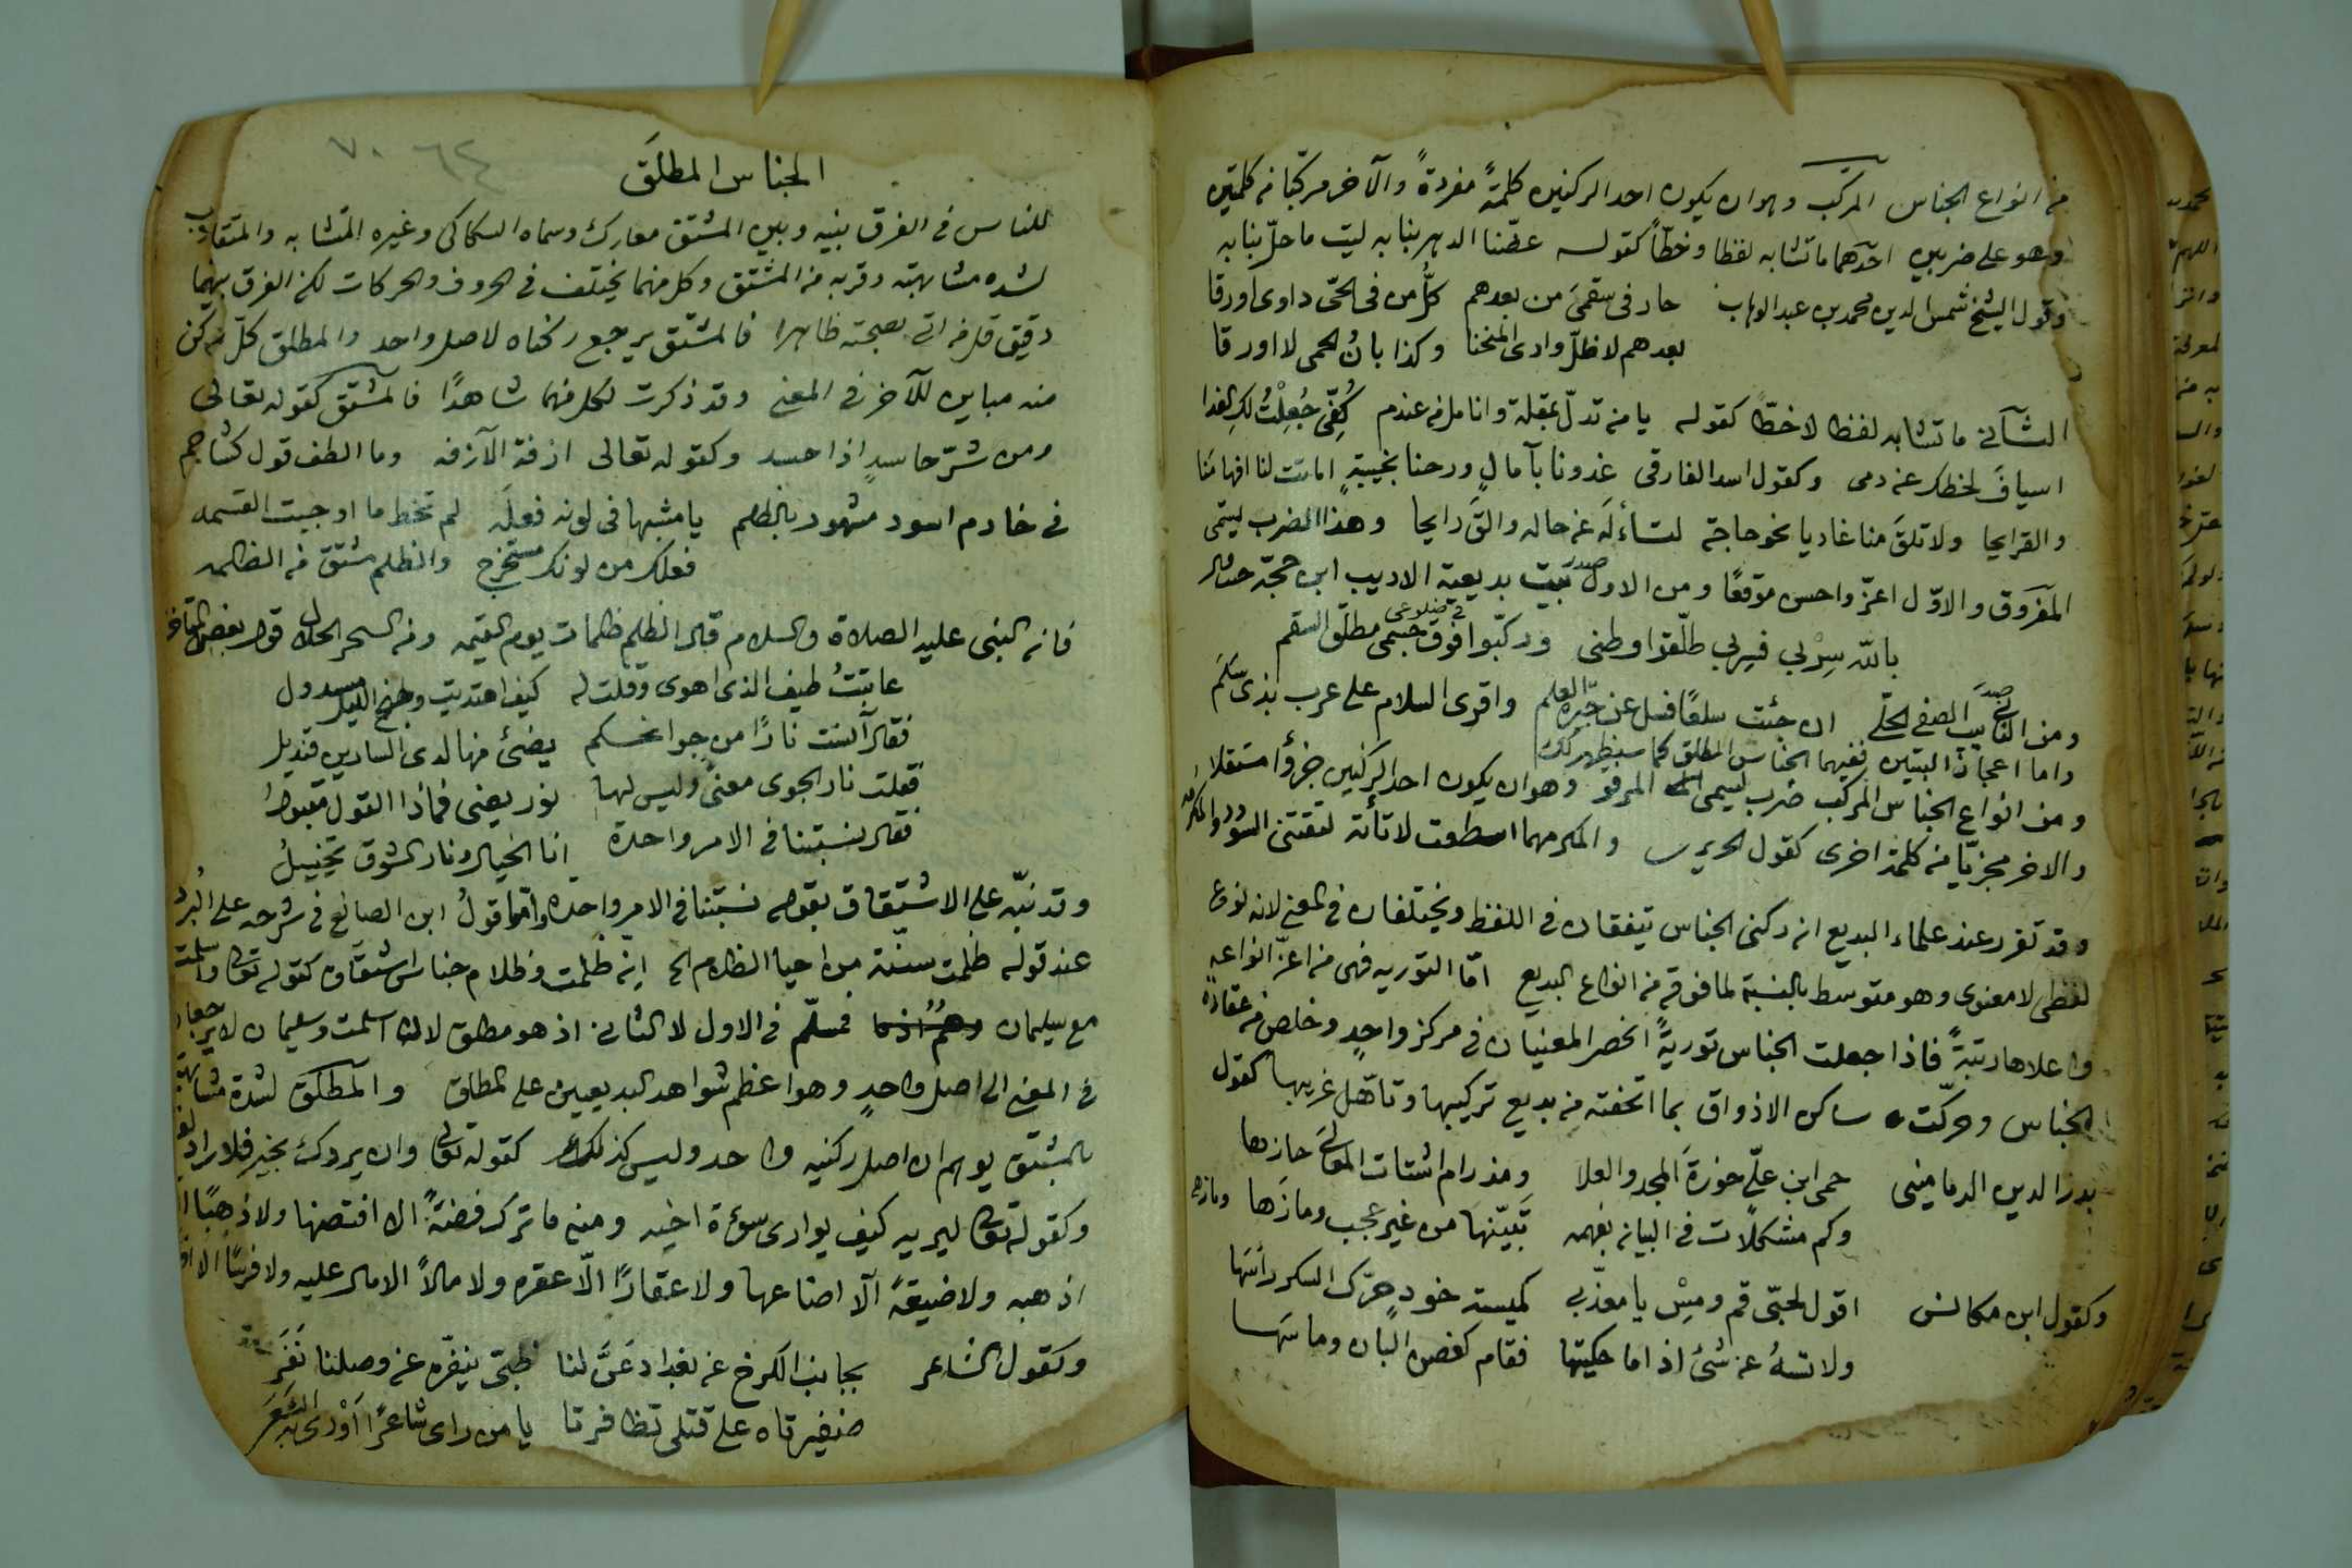 من انواع الجناس المركب وهو ان يكون احد الركنين كلمةً مفردةً والآخر مركّبا من كلمتين
وهو على ضربين احدهما ما تشابه لفظا وخطاً كقوله عضّنا الدهر بنابه ليت ما حلّ بنا به
وقول الشيخ شمس الدين محمد بن عبد الوهاب حار فى سقمى من بعدهم كلُّ من فى الحى داوى اورقا
بعدهم لا ظلّ وادى المنحنا وكذا بانُ الحمى لا اورقا
الثانى ما تشابه لفظا لا خطّا كقوله يا من تدلّ بمقلة وانامل من عندم كُفّى جُعِلْتُ لكِ الفدا
اسيافَ لحظك عن دمى وكقول اسد الفارقى غدونا بآمالٍ ورحنا بخيبةٍ اماتت لنا افهامَنا
والقرايحا ولا تلقَ منا غاديا نحو حاجة لتسأله عن حاله والقَ رايحا وهذا الضرب ليسمى
المفروق والاوّل اعزّ واحسن موقعًا ومن الاول صدر بيت بديعية الاديب ابن حجّة حيث قال
بالله سِرْ بى فسربى طلّقوا وطنى وركّبوا فى ضلوعى مطلق السقم
ومن الثانى صدر بيت الصفى الحلّى ان جئت سلعًا فسل عن جيرة العلم واقرى السلام على عرب بذى سَلَم
واما اعجاز البيتين ففيهما الجناس المطلق كما سيظهر لك
ومن انواع الجناس المركب ضرب ليسمى المرفو وهو ان يكون احد الركنين جزؤًا مستقلا
والاخر مجزيّا من كلمة اخرى كقول الحريرى والمكر مهما اسطعت لا تأته لتقتنى السودد والمكرمه
وقد تقرر عند علماء البديع ان ركنى الجناس يتفقان فى اللفظ ويختلفان فى المعنى لانه نوع
لفظى لا معنوى وهو متوسط بالنسبة لما فوقه من انواع البديع امّا التوريه فهى من اعزّ انواعه
واعلاها رتبةً فاذا جعلت الجناس توريةً انحصر المعنيان فى مركز واحدٍ وخلص من عقادة
الجناس وحركت ساكن الاذواق بما اتحفته من بديع تركيبها وتأهّل غريبها كقول
بدر الدين الدمامينى حمى ابن علّى حوزةَ المجد والعلا ومذ رام اشتات المعالى حازها
وكم مشكلات فى البيان بفهمه تبيّنها من غير عجب وما زها
وكقول ابن مكانس اقول لحبّى قم ومِسْ يا معذّبى كميسة خودٍ حرّك السكر رأسها
ولا تسهُ عن شئ اذا ما حكيتها فقام كغصن البان وما سها
٦٤ ٧٠
الجناس المطلَق
للناس فى الفرق بينه وبين المشتق معارك وسماه السكاكى وغيره المتشابه والمتقارب
لشده مشابهته وقربه من المشتق وكل منهما يختلف فى الحروف والحركات لكن الفرق بينهما
دقيق قل من اتى بصحته ظاهرا فالمشتق يرجع ركناه لاصل واحد والمطلق كلّ ركن
منه مباين للآخر فى المعنى وقد ذكرت لكل منهما شاهدًا فالمشتق كقوله تعالى
ومن شرّ حاسدٍ اذا حسد وكقوله تعالى ازفة الآزفه وما الطف قول كشاجم
فى خادم اسود مشهود بالظلم يا مشبها فى لونه فعلَه لم تخط ما اوجبت القسمه
فعلك من لونك مستخرج والظلم مشتق من الظلمه
فانه النبى عليه الصلاة والسلام قال الظلم ظلمات يوم القيمه ومن السحر الحلال قول بعض
عاتبتُ طيف الذى اهوى وقلت له كيف اهتديت وجنح الليل مسدول
فقال آنست نارًا من جوانحكم يضئ منها لدى السارين قنديل
فقلت نار الجوى معنىً وليس لها نور يضئ فماذا القول مقبولُ
فقال نسبتنا فى الامر واحدة انا الخيال ونار الشوق تخييلُ
وقد نبّه على الاشتقاق بقوله نسبتنا فى الامر واحدة واما قولُ ابن الصائغ فى شرحه على البرد
عند قوله ظلمت سنّة من احيا الظلام الخ ان ظلمت وظلام جناس اشتقاق كقوله تعالى واسلمت
مع سليمان فمسلّم فى الاول لا الثانى اذ هو مطلق لان اسلمت وسليمان لا يرجعان
فى المعنى الى اصل واحدٍ وهو اعظم شواهد البديعيين على المطلق والمطلَق لشدة مشابهته
بالمشتق يوهم ان اصل ركنيه واحد وليس كذلك كقوله تعالى وان يردك بخير فلا راد
وكقوله تعالى ليريه كيف يوارى سوءة اخيه ومنه ما ترك فضةً الا افتضها ولا ذهبًا الا
اذهبه ولا ضيعةً الّا اضاعها ولا عقارًا الّا عقره ولا مالاً الا مال عليه ولا فرسًا الا
وكقول الشاعر بجانب الكرخ عن بغداد عَنَّ لنا ظبىٌ ينفّره عن وصلنا نَفَر
ضفيرتاه على قتلى تظافرتا يا من راى شاعرًا اَوْدى به الشَعَر